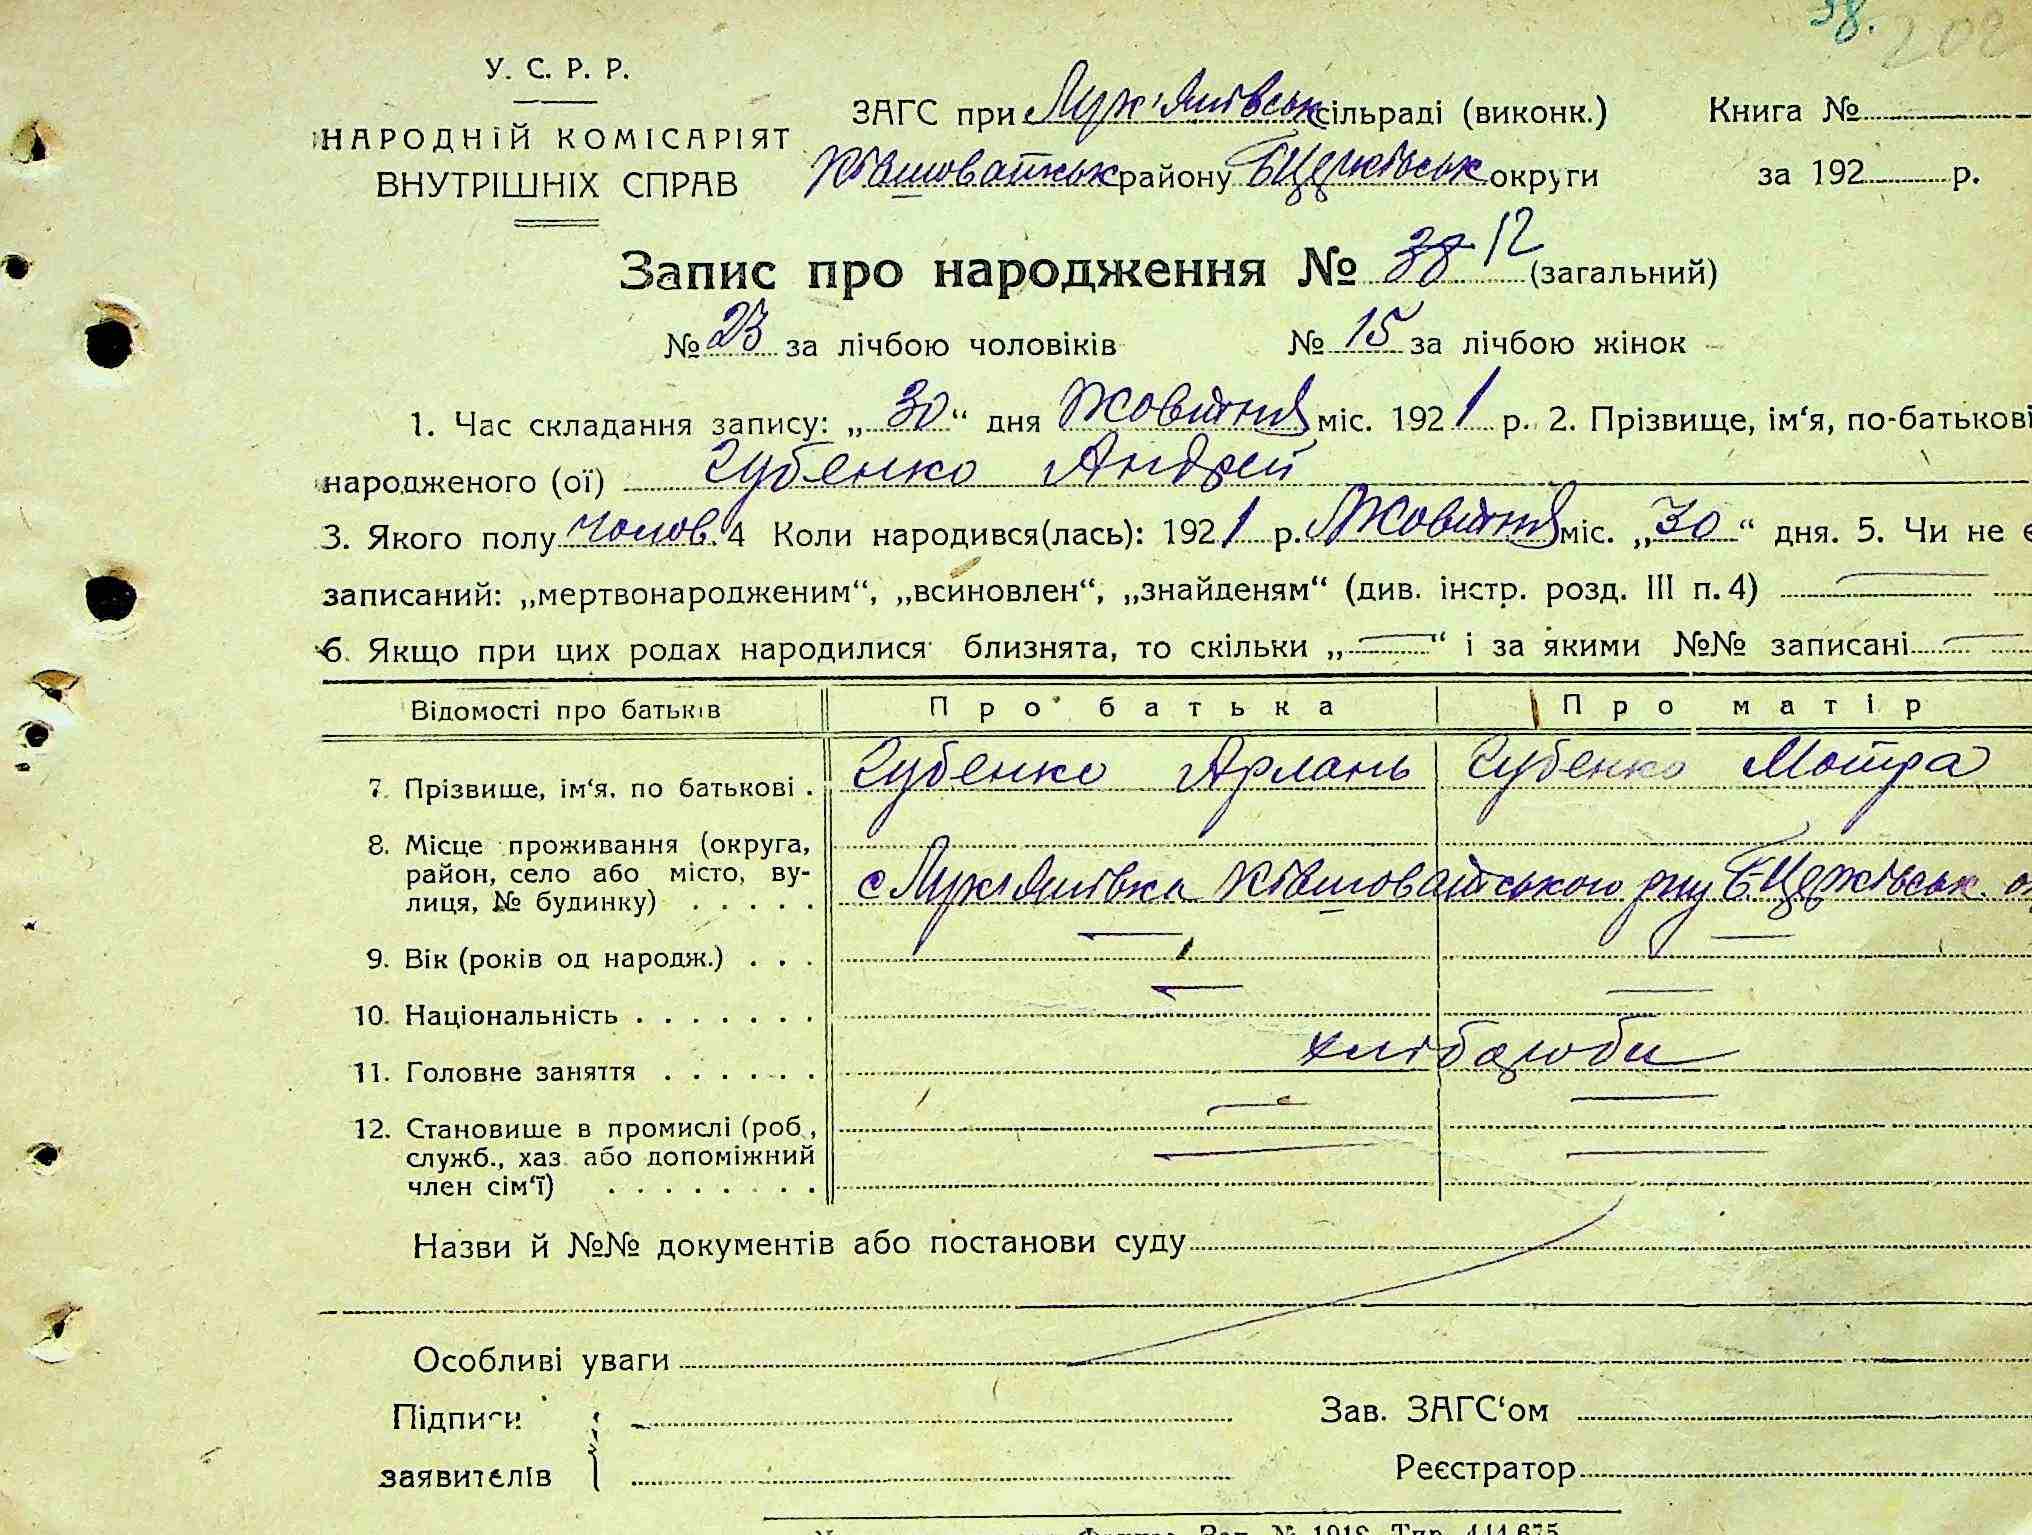 38. 208
У. С. Р. Р.
НАРОДНІЙ КОМІСАРІЯТ
ВНУТРІШНІХ СПРАВ
ЗАГС при Лук'янівськ сільраді (виконк.) Книга №
Ківшоватськ району Б Церківськ округи за 192 р.
Запис про народження № 38 12 (загальний)
№ 23 за лічбою чоловіків № 15 за лічбою жінок
1. Час складання запису: „30“ дня Жовтня міс. 1921 р. 2. Прізвище, ім‘я, по-батькові
народженого (ої) Губенко Андрей
3. Якого полу чолов. 4 Коли народився(лась): 1921 р. Жовтня міс. „30“ дня. 5. Чи не є
записаний: „мертвонародженим“, „всиновлен“, „знайденям“ (див. інстр. розд. III п. 4)
6. Якщо при цих родах народилися близнята, то скільки „—“ і за якими №№ записані
Відомості про батьків Про батька Про матір
7. Прізвище, ім‘я, по батькові . Губенко Арлань Губенко Мотра
8. Місце проживання (округа,
район, село або місто, ву-
лиця, № будинку) . . . . . с Лук'янівка Ківшоватського рну Б. Церківськ. ок
9. Вік (років од народж.) . . .
10. Національність . . . . . . .
11. Головне заняття . . . . . . хлібороби
12. Становище в промислі (роб.,
служб., хаз. або допоміжний
член сім‘ї) . . . . . . . .
Назви й №№ документів або постанови суду
Особливі уваги
Підписи Зав. ЗАГС‘ом
заявителів Реєстратор
Зал. № 1918 Тир. 444.675